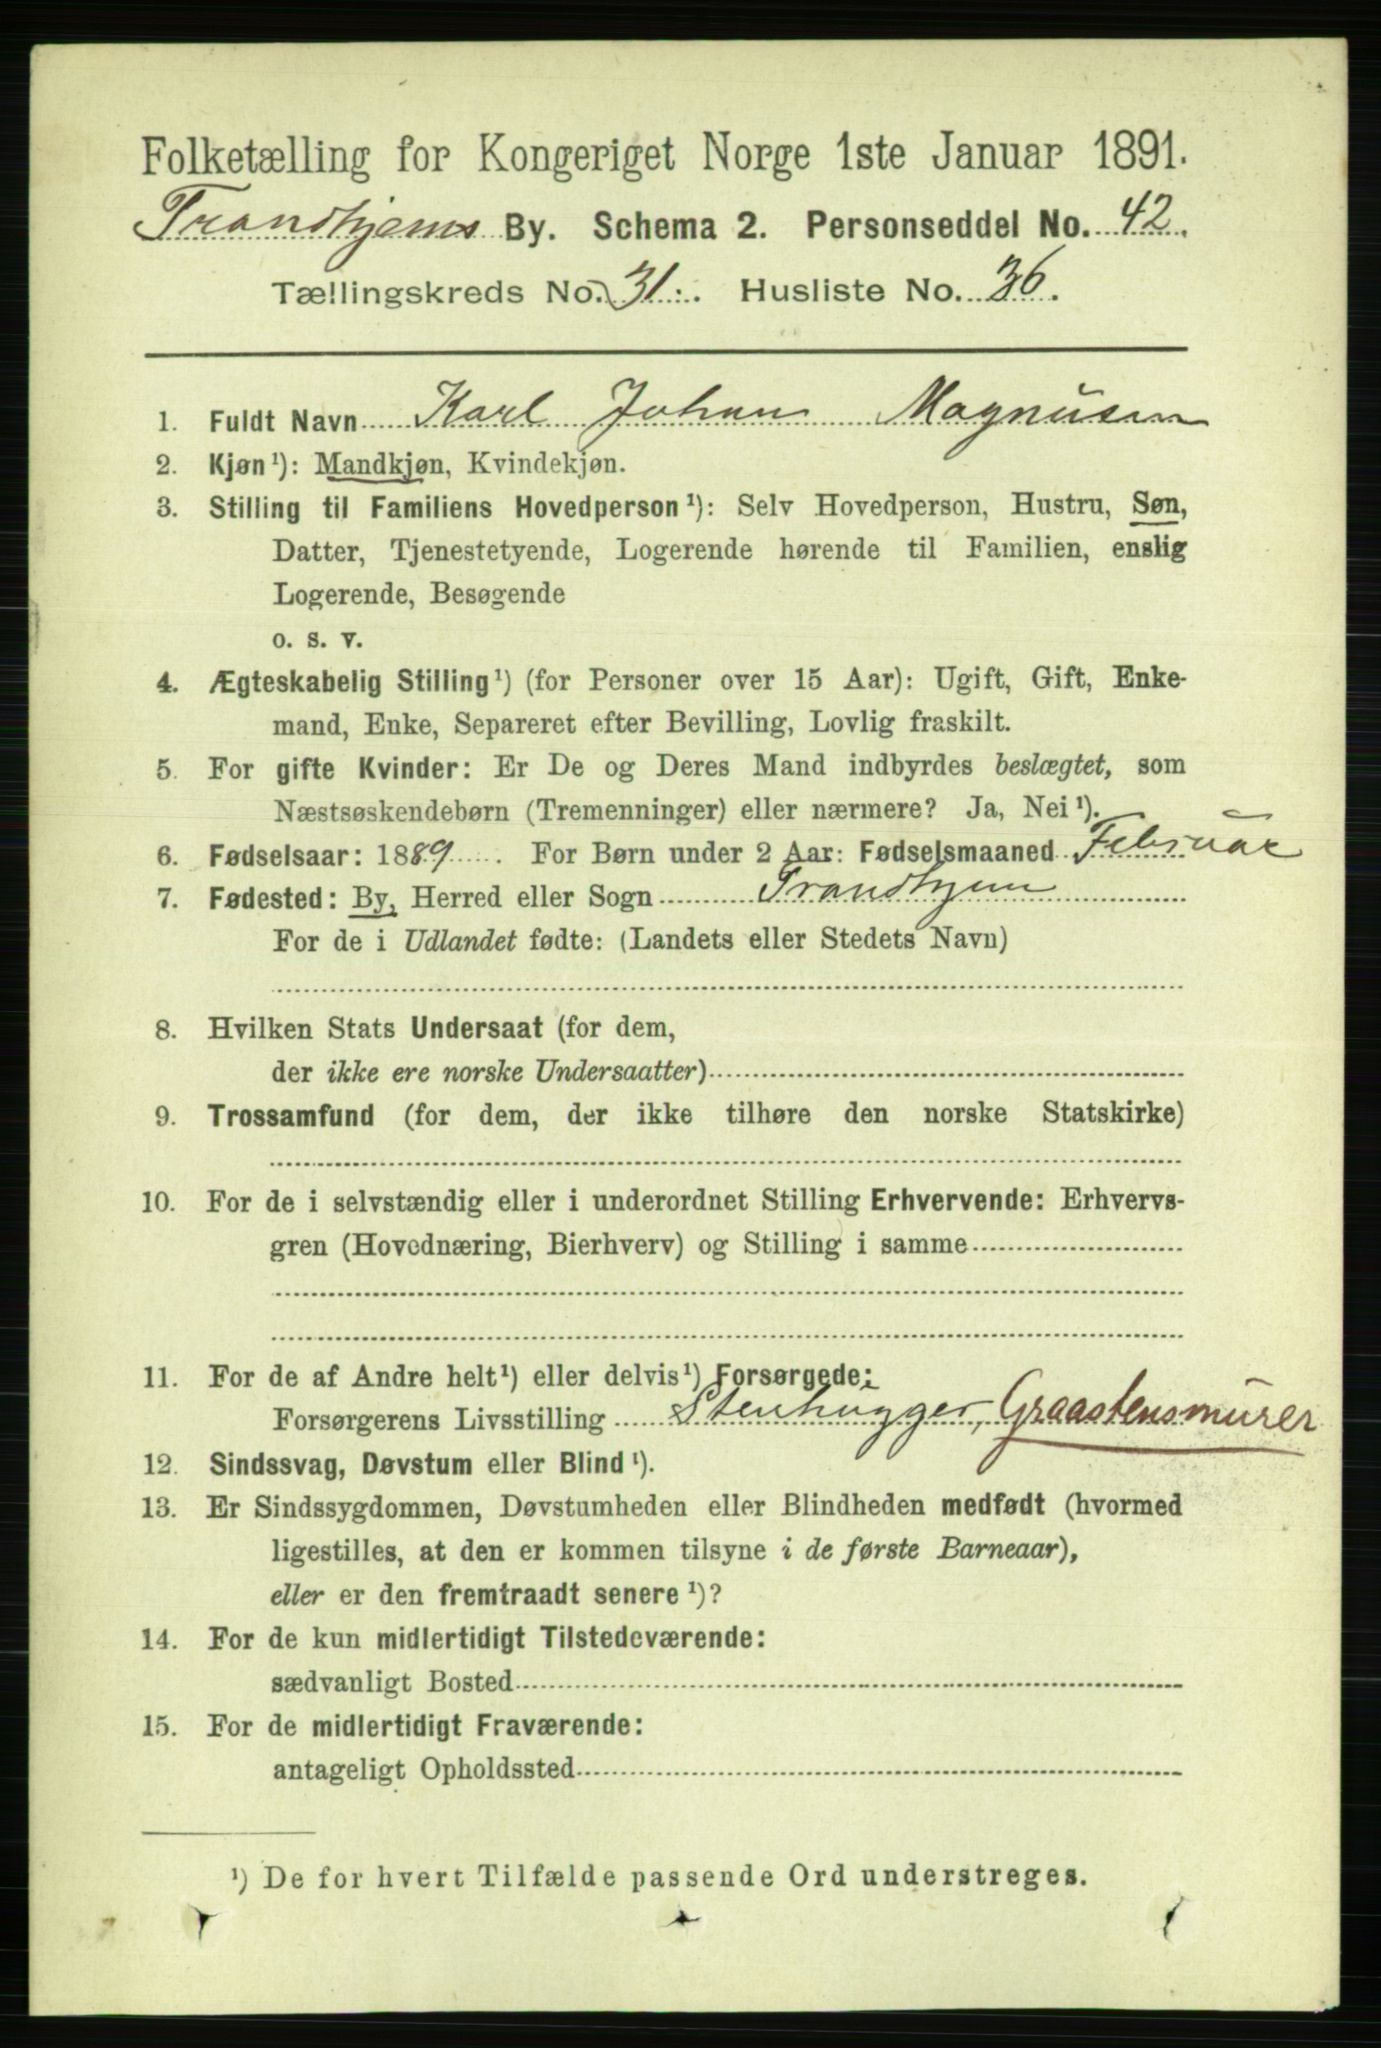 Folketælling for Kongeriget Norge 1ste Januar 1891.
Trondhjems By. Schema 2. Personseddel No. 42.
Tællingskreds No. 31. Husliste No. 36.
1. Fuldt Navn Karl Johan Magnusen
2. Kjøn¹): Mandkjøn, Kvindekjøn.
3. Stilling til Familiens Hovedperson¹): Selv Hovedperson, Hustru, Søn,
Datter, Tjenestetyende, Logerende hørende til Familien, enslig
Logerende, Besøgende
o. s. v.
4. Ægteskabelig Stilling¹) (for Personer over 15 Aar): Ugift, Gift, Enke-
mand, Enke, Separeret efter Bevilling, Lovlig fraskilt.
5. For gifte Kvinder: Er De og Deres Mand indbyrdes beslægtet, som
Næstsøskendebørn (Tremenninger) eller nærmere? Ja, Nei¹).
6. Fødselsaar: 1889. For Børn under 2 Aar: Fødselsmaaned Februar
7. Fødested: By, Herred eller Sogn Trondhjem
For de i Udlandet fødte: (Landets eller Stedets Navn)
8. Hvilken Stats Undersaat (for dem,
der ikke ere norske Undersaatter)
9. Trossamfund (for dem, der ikke tilhøre den norske Statskirke)
10. For de i selvstændig eller i underordnet Stilling Erhvervende: Erhvervs-
gren (Hovednæring, Bierhverv) og Stilling i samme
11. For de af Andre helt¹) eller delvis¹) Forsørgede:
Forsørgerens Livsstilling Stenhugger, Graastensmurer
12. Sindssvag, Døvstum eller Blind¹).
13. Er Sindssygdommen, Døvstumheden eller Blindheden medfødt (hvormed
ligestilles, at den er kommen tilsyne i de første Barneaar),
eller er den fremtraadt senere¹)?
14. For de kun midlertidigt Tilstedeværende:
sædvanligt Bosted
15. For de midlertidigt Fraværende:
antageligt Opholdssted
¹) De for hvert Tilfælde passende Ord understreges.